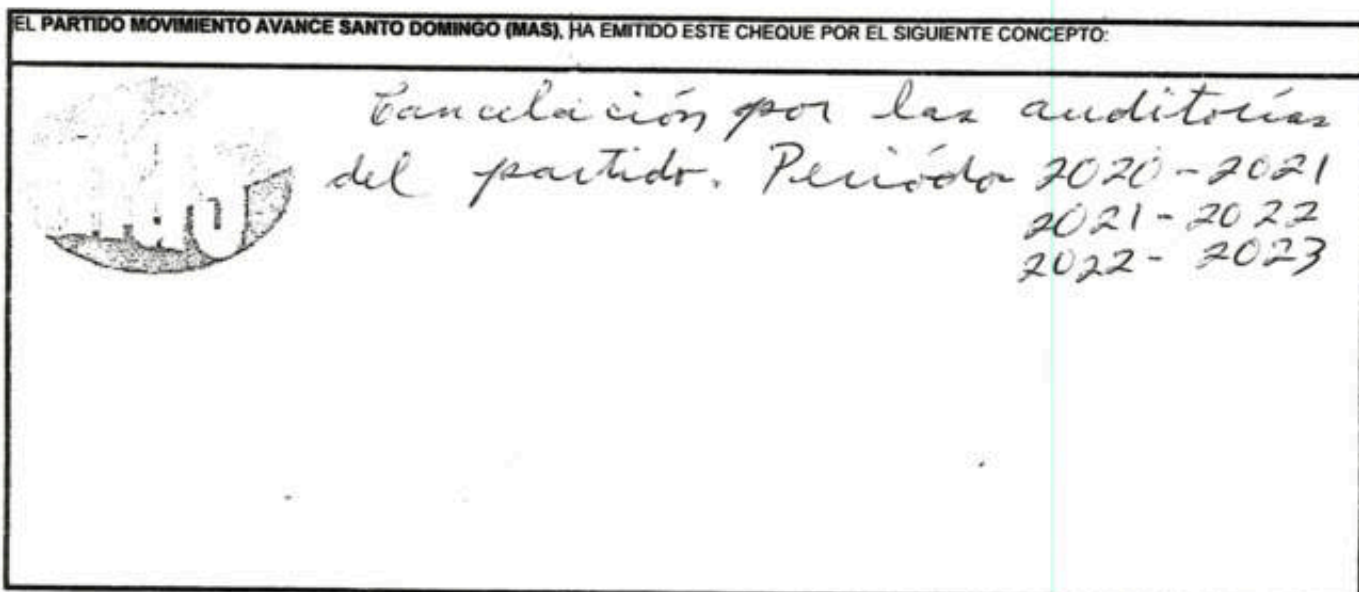 EL PARTIDO MOVIMIENTO AVANCE SANTO DOMINGO (MAS), HA EMITIDO ESTE CHEQUE POR EL SIGUIENTE CONCEPTO:
Cancelación por las auditorías
del partido. Periódo 2020-2021
2021-2022
2022-2023